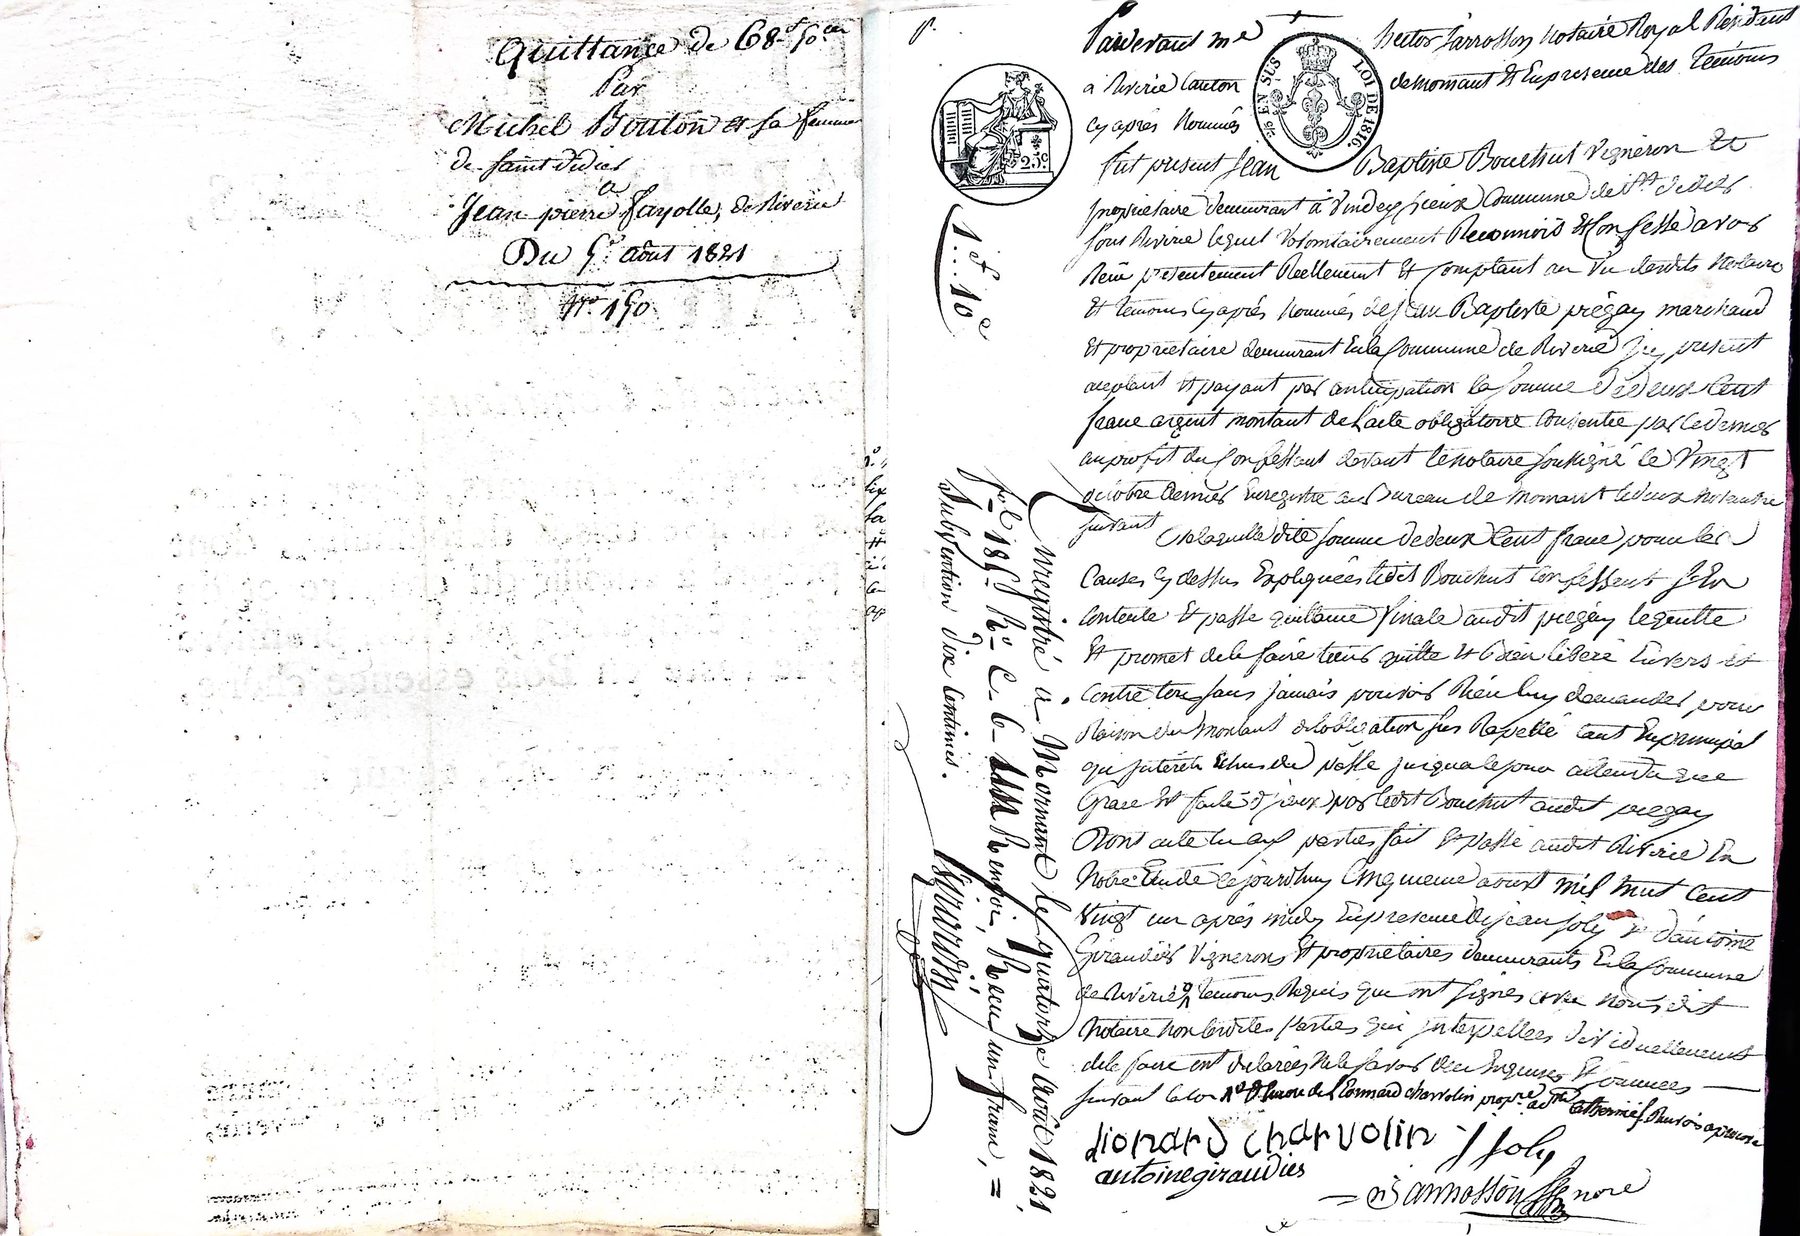 Quittance de 68f 50cen
Par
Michel Bouton et sa femme
de saint didier
a
Jean pierre fayolle, de Riverie
Du 5e aout 1821
N° 150
Pardevant me hector Jarrosson Notaire Royal Résident
à Riverie Canton de mornant Et En presence des Témoins
cy après Nommés
EN SUS LOI DE 1816
25c
fut present Jean Baptiste Bouchut Vigneron Et
propriétaire demeurant à Commune de st didier
sous Riverie lequel volontairement Reconnois et Confesse avoir
Reçu presentement Réellement Et Comptant au vu desdits Notaire
Et temoins cy après Nommés de Jean Baptiste prégay marchand
Et proprietaire demeurant En la Commune de Riverie Icy present
aceptant et payant par anticipation la somme de deux Cent
franc argent montant de l'acte obligatoire consentie par ce dernier
au profit du Confessant devant le notaire soussigné le Vingt
octobre dernier Enregistré au Bureau de mornant le deux Novembre
suivant De laquelle dite somme de deux Cent franc pour les
Causes cy dessus Expliquées ledit Bouchut Confessent s'En
contente Et passe quittance finale audit prégay le quitte
Et promet de le faire tenir quitte et bien libéré Envers et
Contre tous sans jamais pouvoir Rien luy demander pour
Raison du montant de l'obligation sus Rapellé tant En principal
qu'intérêt Echus du passé jusqu'a le jour attendu que
Grace Est faite d'iceux par ledit Bouchut audit prégay
Dont acte lu aux parties fait et passé audit Riverie En
Notre Etude cejourdhuy Cinquieme aoust mil huit Cent
Vingt un après midy En presence de Jean Joly et d'antoine
Giraudier Vignerons Et proprietaires demeurants En la Commune
de Riverie temoins Requis qui ont signés avec nous dit
Notaire Non lesdites Parties qui Interpellées dividuellement
de le faire ont déclarées Ne le savoir de ce Enquises Et
suivant la loi de Leonnard charvolin
lionard charvolin J Joly
antoine giraudier
Jarrosson nore
1f 10c
Enregistré a Mornant le quatorze Août 1821,
fol 185 Ro C 6 Renvoi, Recu un franc,
Subvention dix centimes.